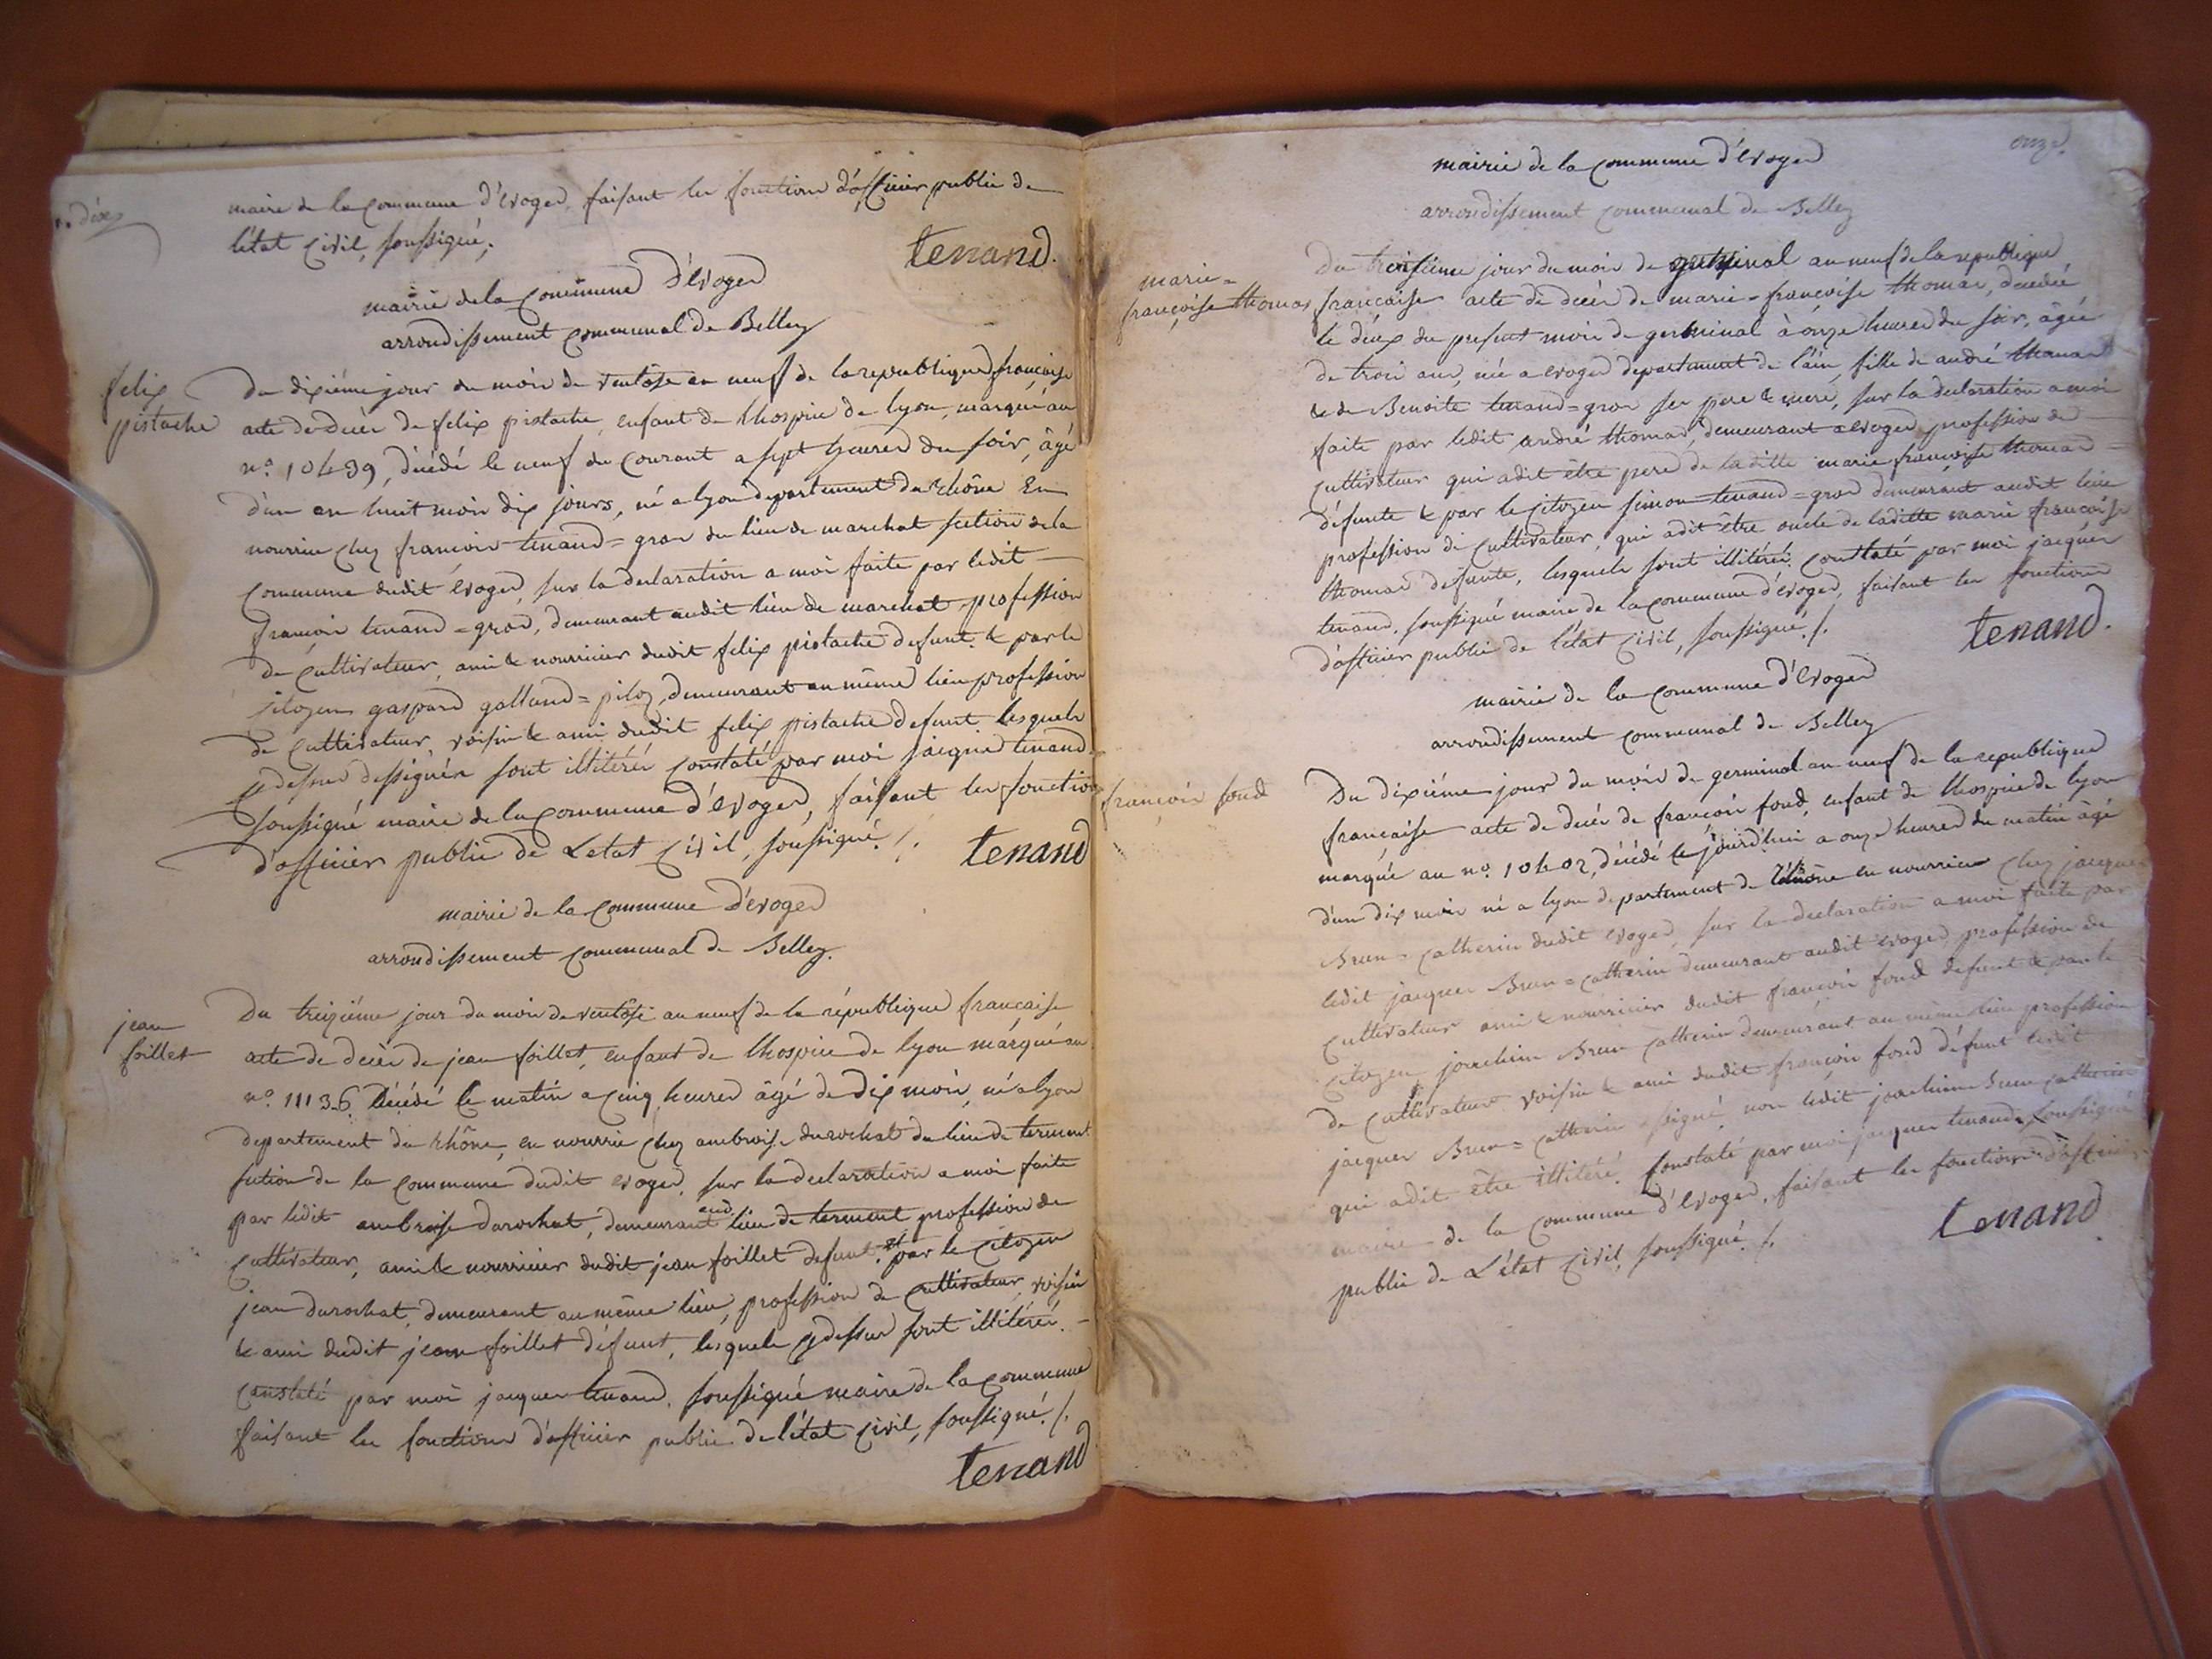 dix
maire de la commune d'evoged, faisant les fonctions d'officier public de
l'état civil, soussigné,
tenand.
mairie de la commune d'evoged
arrondissement communal de Belley
felix
pistache
du dixiéme jour du mois de ventôse an neuf de la republique françaisse
acte de decès de felix pistache, enfant de lhospice de lyon, marqué au
n.o 10439, décédé le neuf du courant a sept heures du soir, âgé
d'un an huit mois dix jours, né a lyon departement du rhône En
nourrice chez françois tenand=gros du lieu de marchat section de la
commune dudit evoged, sur la declaration a moi faite par ledit
françois tenand=gros, demeurant audit lieu de marchat profession
de cultivateur, ami & nourricier dudit felix pistache defunt & par le
citoyen gaspard galland=piloz demeurant au même lieu profession
de cultivateur, voisin & ami dudit felix pistache defunt lesquels
cy dessus dessignés sont illitérés constaté par moi jacques tenand
soussigné maire de la commune d'evoged, faisant les fonctions
d'officier public de Letat civil, soussigné ./.
tenand
mairie de la commune d'evoged
arrondissement communal de Belley.
jean
foillet
Du treiziéme jour du mois de ventôse an neuf de la république française
acte de decès de jean foillet, enfant de lhospice de lyon márqué au
n.o 11136 décédé le matin a cinq heures âgé de dix mois, né a lyon
departement du rhône, en nourrice chez ambroise durochat du lieu de terment
section de la commune dudit evoged, sur la declaration a moi faite
par ledit ambroise durochat, demeurant aud. lieu de terment profession de
cultivateur, ami & nourricier dudit jean foillet defunt, et par le citoyen
jean durochat, demeurant au même lieu, profession de cultivateur, voisin
& ami dudit jean foillet défunt, lesquels cy dessus sont illitérés.
constaté par moi jacques tenand, soussigné maire de la commune
faisant les fonctions d'officier public de l'état civil, soussigné ./.
tenand
onze.
mairie de la commune d'evoged
arrondissement communal de Belley
marie=
françoise thomas
Du troisiéme jour du mois de germinal an neuf de la republique
française acte de decès de marie=françoise thomas, décédée
le deux du present mois de germinal à onze heures du soir, âgée
de trois ans, née a evoged departement de l'ain, fille de andré thomas
& de Benoite tenand=gros ses pere & mere, sur la declaration a moi
faite par ledit andré thomas, demeurant a evoged profession de
cultivateur qui a dit être pere de laditte marie françoise thomas
défunte & par le citoyen simon tenand=gros demeurant audit lieu
profession de cultivateur, qui a dit être oncle de laditte marie françoise
thomas defunte, lesquels sont illitérés. constaté par moi jacques
tenand, soussigné maire de la commune d'evoged, faisant les fonctions
d'officier public de l'état civil, soussigné ./.
tenand.
mairie de la commune d'evoged
arrondissement communal de Belley
françois fond
Du dixiéme jour du mois de germinal an neuf de la republique
française acte de decès de françois fond, enfant de lhospice de lyon
marqué au no. 10402, décédé ce jourd'hui a onze heures du matin âgé
d'un dix mois né a lyon departement de rhône en nourrice chez jacques
Brun=catherin dudit evoged, sur la declaration a moi faite par
ledit jacques Brun=catherin demeurant audit evoged profession de
cultivateur ami & nourricier dudit françois fond defunt & par le
citoyen joachim Brun catherin demeurant au même lieu profession
de cultivateur voisin & ami dudit françois fond défunt ledit
jacques Brun=catherin signé, non ledit joachim brun catherin
qui a dit être illitéré. constaté par moi jacques tenand, soussigné
maire de la commune d'evoged, faisant les fonctions d'officier
public de L'état civil, soussigné ./.
tenand